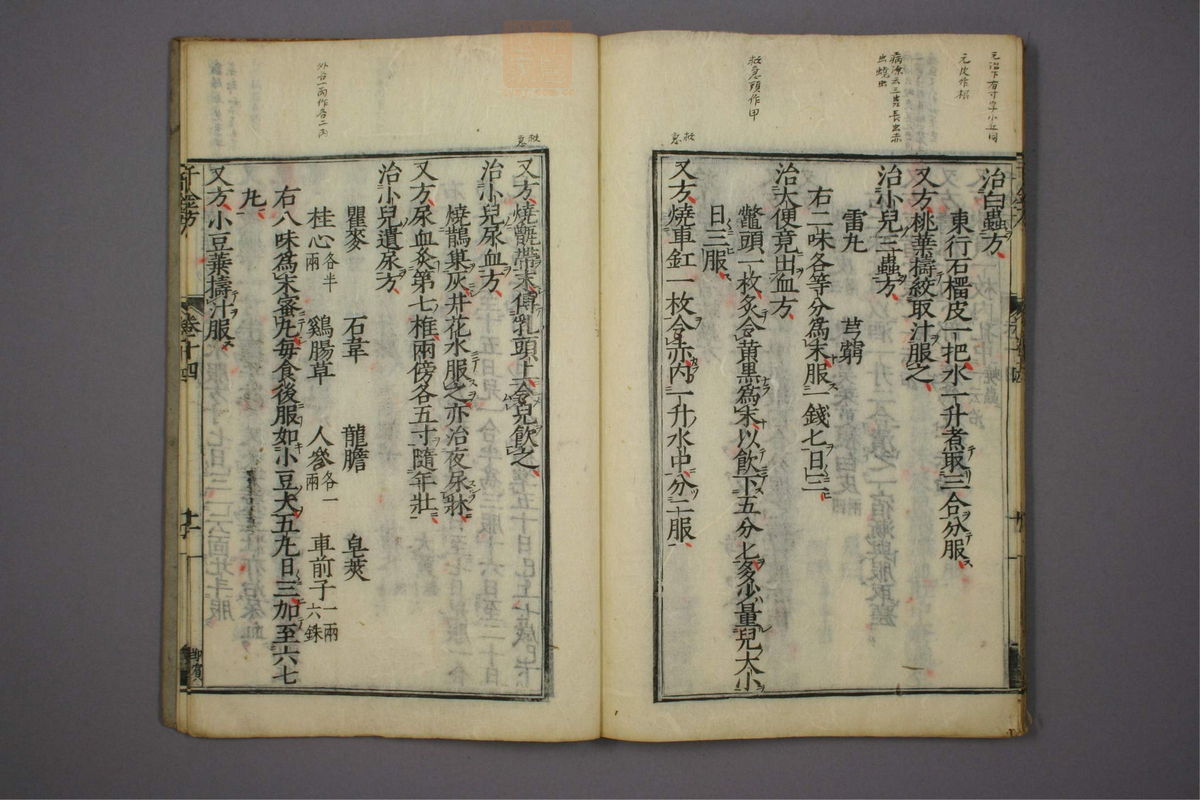 治白蟲方
東行石橊皮一把水一升煮取三合分服
又方桃葉擣絞取汁服之
治小兒三蟲方
雷丸 芎藭
右二味各等分爲末服一錢匕日三
治大便竟出血方
鼈頭一枚炙令黄黑爲末以飲下五分匕多少量兒大小
日三服
又方燒車釭一枚令赤内一升水中分二服
又方燒甑帶末傅乳頭上令兒飲之
治小兒尿血方
燒鵲巢灰井花水服之亦治夜尿牀
又方尿血灸第七椎兩傍各五寸隨年壯
治小兒遺尿方
瞿麥 石韋 龍膽 皂莢
桂心各半兩 鷄腸草 人參各一兩 車前子一兩六銖
右八味爲末蜜丸每食後服如小豆大五丸日三加至六七
丸
又方小豆葉擣汁服
千金方
卷十四
元皮作根
救急頭作甲
救急
救急
外台一兩作各二兩